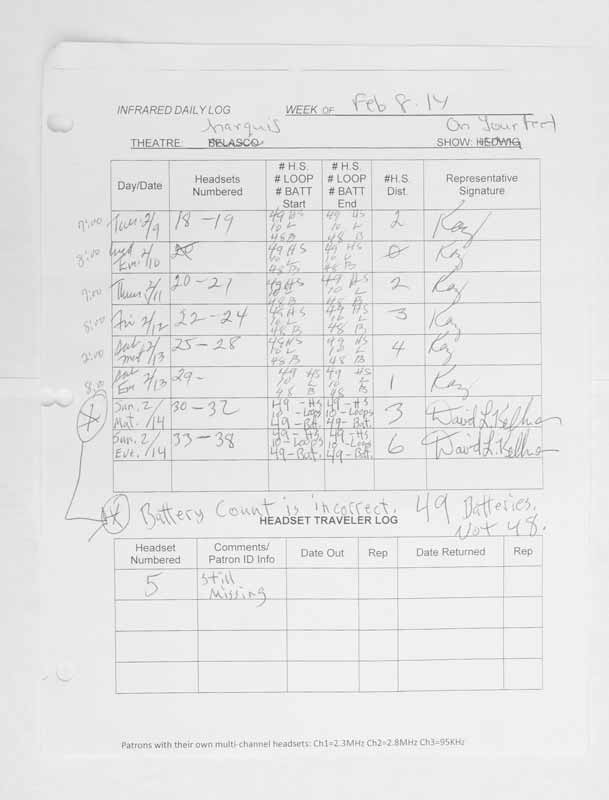 INFRARED DAILY LOG WEEK OF Feb 8-14
Marquis On Your Feet
THEATRE: BELASCO SHOW: HEDWIG
Day/Date Headsets Numbered # H.S. # LOOP # BATT Start # H.S. # LOOP # BATT End #H.S. Dist. Representative Signature
7:00 Tues 2/9 18-19 49 HS 10 L 48 B 49 HS 10 L 48 B 2 Kay
8:00 Wed Eve. 2/10 49 HS 10 L 48 B 49 HS 10 L 48 B 0 Kay
7:00 Thurs 2/11 20-21 49 HS 10 L 48 B 49 HS 10 L 48 B 2 Kay
8:00 Fri 2/12 22-24 49 HS 10 L 48 B 49 HS 10 L 48 B 3 Kay
2:00 Sat Mat 2/13 25-28 49 HS 10 L 48 B 49 HS 10 L 48 B 4 Kay
8:00 Sat Eve 2/13 29- 49 HS 10 L 48 B 49 HS 10 L 48 B 1 Kay
* Sun. 2/14 Mat. 30-32 49-HS 10-Loops 49-Batt. 49-HS 10-Loops 49-Batt. 3 David L.
Sun. 2/14 Eve. 33-38 49-HS 10-Loops 49-Batt. 49-HS 10-Loops 49-Batt. 6 David L.
* Battery Count is incorrect. 49 Batteries.
Not 48.
HEADSET TRAVELER LOG
Headset Numbered Comments/ Patron ID Info Date Out Rep Date Returned Rep
5 Still Missing
Patrons with their own multi-channel headsets: Ch1=2.3MHz Ch2=2.8MHz Ch3=95KHz